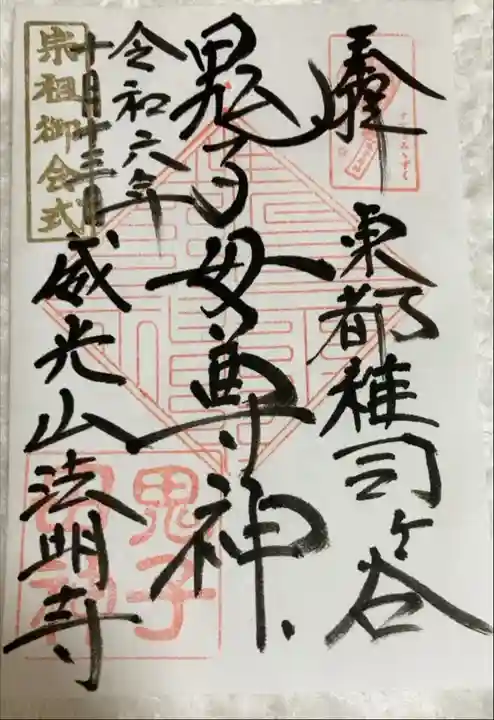 奉拝
東都雑司ヶ谷
鬼子母尊神
令和六年
十月十三日
宗祖御会式
威光山法明寺
すすきみみずく